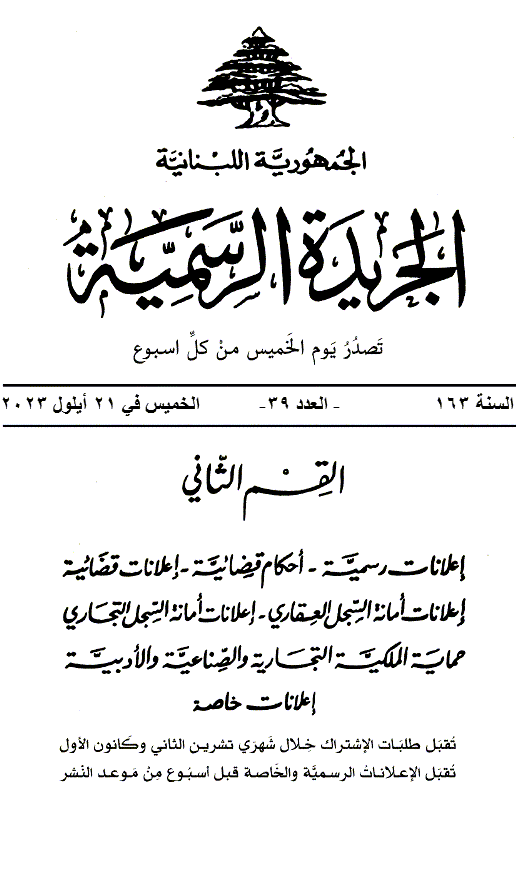 الجُمهُوريَّة اللبْنانيَّة
الجَريدَة الرَّسميَّة
تَصدُرُ يَوم الخَميس منْ كلِّ اسبوع
السنة ١٦٣ ـ العدد ٣٩- الخميس في ٢١ أيلول ٢٠٢٣
القِسْم الثَّاني
إعلانات رسميَّة - أحكام قضائيَّة - إعلانات قضائية
إعلانات أمانة السِّجل العِقاري - إعلانات أمانة السِّجل التجاري
حماية الملكيَّة التجارية والصِّناعيَّة والأدبيَّة
إعلانات خاصة
تُقبَل طلبَات الإشتراك خِلال شَهرَي تشرين الثاني وكَانون الأول
تُقبَل الإعلاناتُ الرسميَّة والخَاصة قبل أسبُوع مِنْ مَوعد النَشر